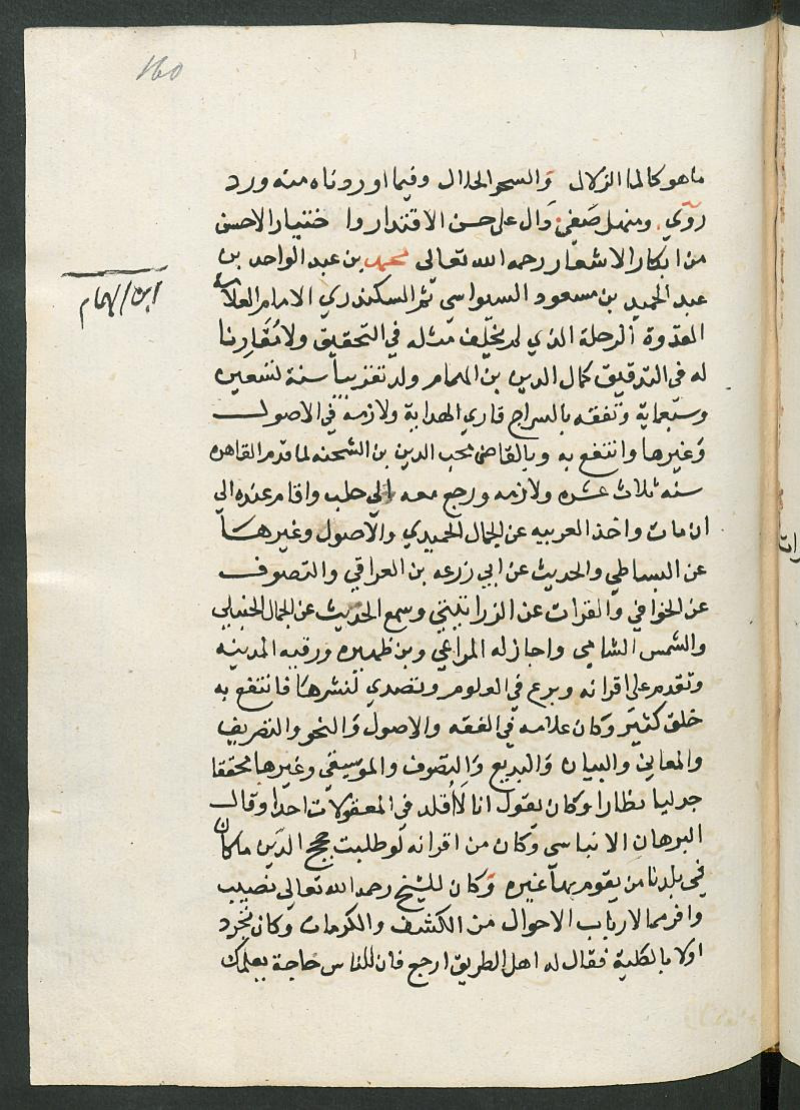 160
ماهو كالما الزلال والسحر الحلال وفيما اوردناه منه ورد
روي ومنهل صفي وال على حسن الاقتدار وا ختيار الاحسن
من ابكار الاشعار رحمه الله تعالى محمد بن عبد الواحد بن
عبد الحميد بن مسعود السيواسي ثم السكندري الامام العلامة
ابن الهمام
القدوة الرحلة الذي لم يخلف مثله في التحقيق ولا مقارنا
له في التدقيق كمال الدين بن الهمام ولد تقريبا سنة تسعين
وسبعماية وتفقه بالسراج قاري الهداية ولازمه في الاصول
وغيرها وانتفع به وبالقاضي محب الدين بن الشحنه لما قدم القاهره
سنه ثلاث عشره ولازمه ورجع معه الي حلب واقام عنده الي
ان مات واخذ العربيه عن الجمال الحميدي والاصول وغيرها
عن البساطي والحديث عن ابي زرعه بن العراقي والتصوف
عن الخوافي والقرات عن الزراتيتي وسمع الحديث عن الجمال الحنبلي
والشمس الشامي واجاز له المراغي وبن ظهيره ورقيه المدينه
وتقدم على اقرانه وبرع في العلوم وتصدي لنشرها فانتفع به
خلق كثير وكان علامه في الفقه والاصول والنحو والتصريف
والمعاني والبيان والبديع والتصوف والموسيقي وغيرها محققا
جدليا نظارا وكان يقول انا لا اقلد في المعقولات احدا وقال
البرهان الانباسي وكان من اقرانه لو طلبت حجج الدين ما كان
في بلدنا من يقوم بها غيره وكان للشيخ رحمه الله تعالي نصيب
وافر مما لارباب الاحوال من الكشف والكرمات وكان تجرد
اولا بالكلية فقال له اهل الطريق ارجع فان للناس حاجة بعلمك